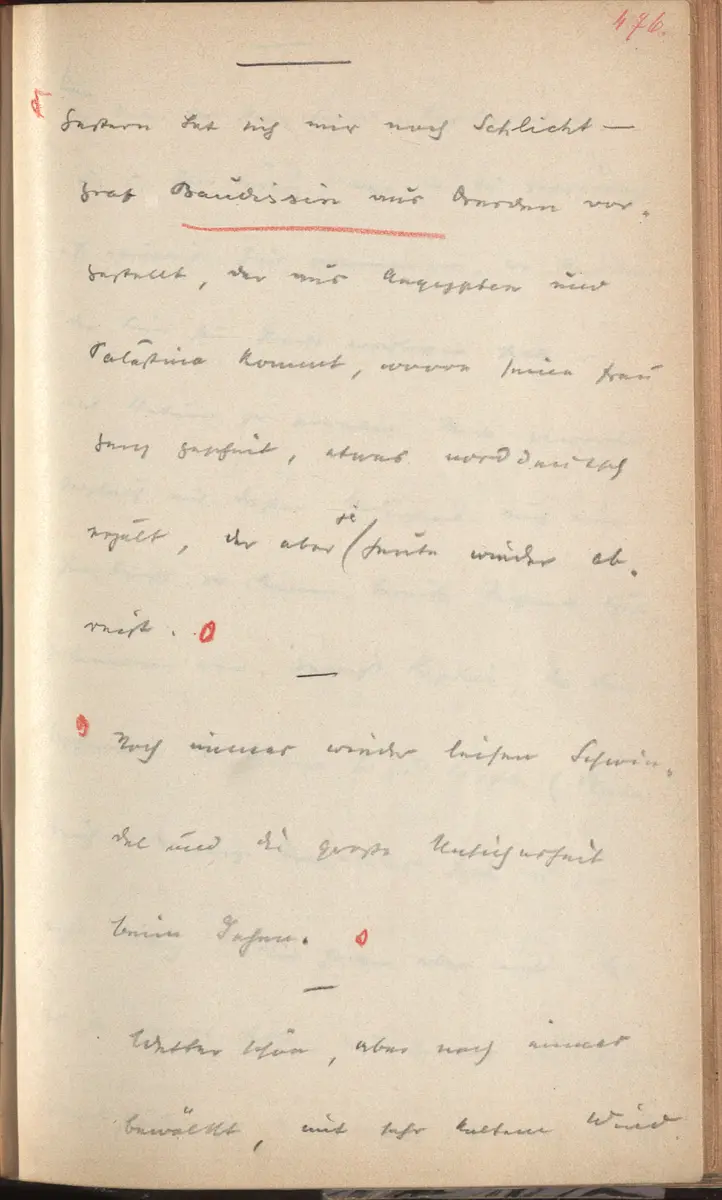 476.
Gestern hat sich mir noch Schlicht –
Graf Baudissin aus Dresden vor-
gestellt, der aus Aegypten und
Palästina kommt, wovon seine Frau
ganz gescheit, etwas norddeutsch
erzält, der aber heute wieder ab-
reist.
Noch immer wieder leisen Schwin-
del und die große Unsicherheit
beim Gehen.
Wetter schön, aber noch immer
bewölkt, mit sehr kaltem Wind